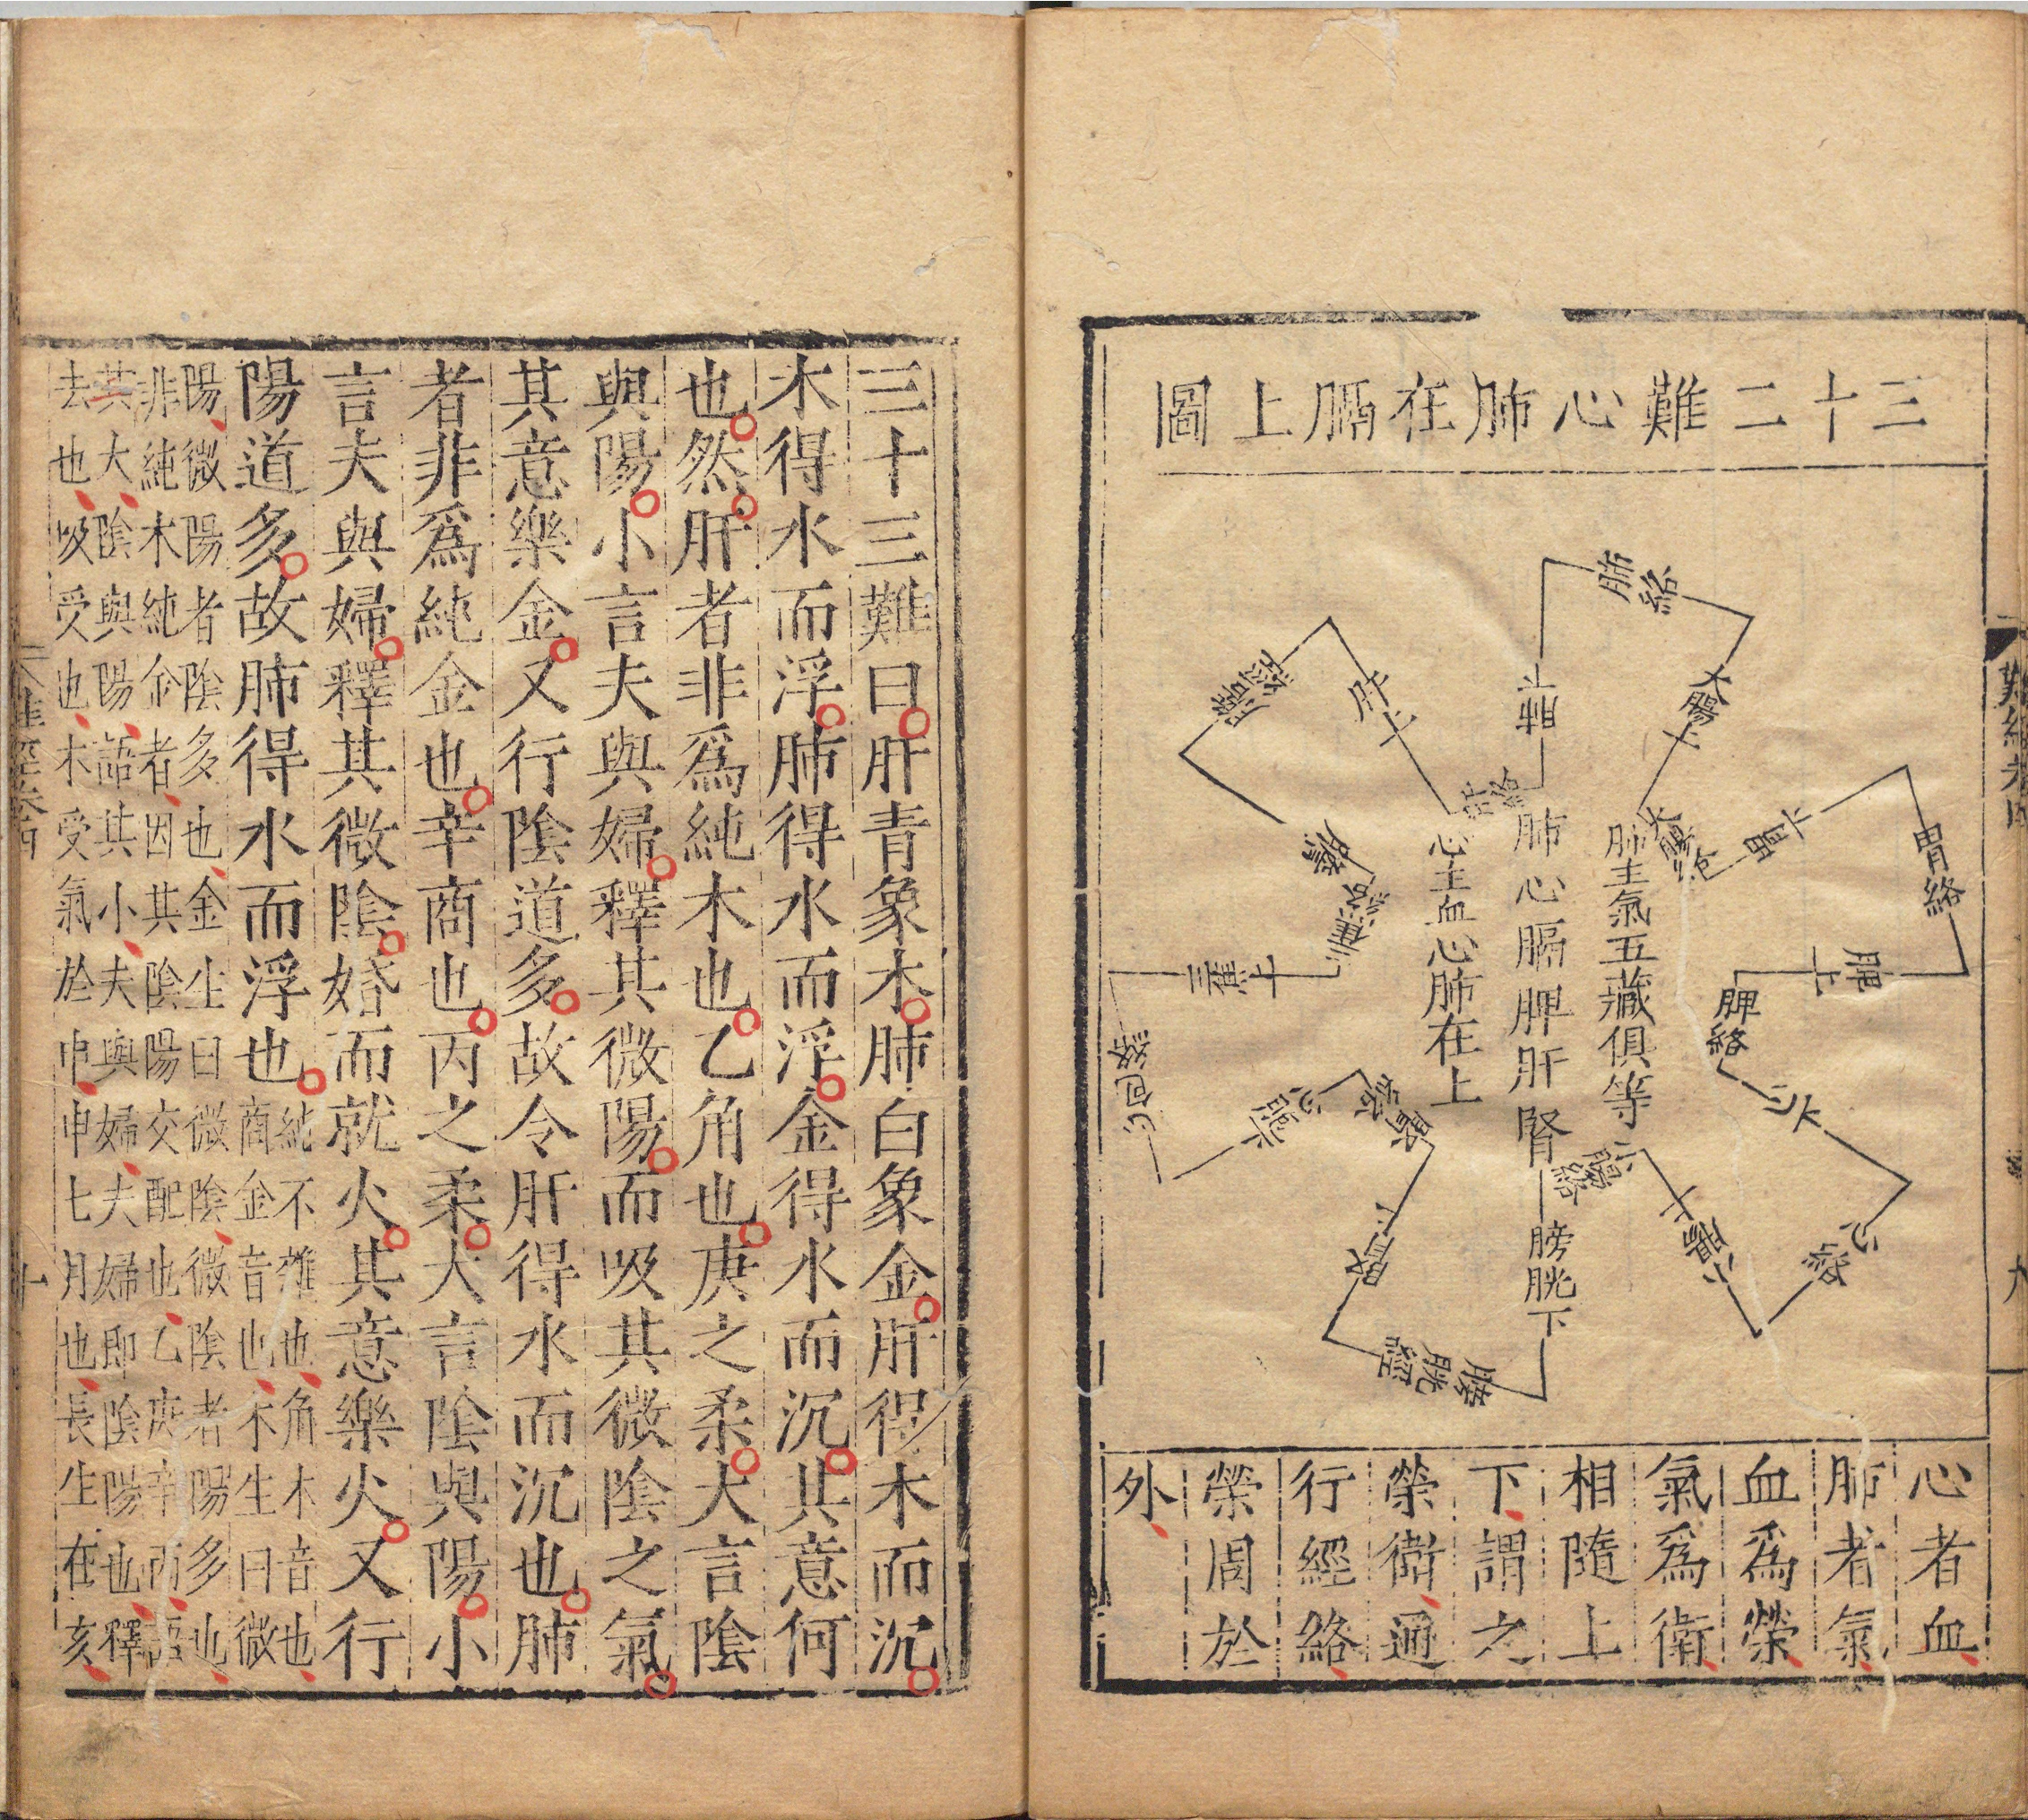 三十二難心肺在膈上圖
肺絡
上肺
大腸上
大腸絡
上胃
胃絡
脾上
脾絡
心上
心絡
小腸上
小腸絡
膀胱下
膀胱經
腎上
腎絡
心胞上
心包絡
三焦上
三焦絡
膽
膽絡
肝上
肝絡
肺主氣五藏俱等
肺心膈脾肝腎
心主血心肺在上
心者血
肺者氣
血爲榮
氣爲衛
相隨上
下謂之
榮衛通
行經絡
榮周於
外
難經卷四
九
三十三難曰肝青象木肺白象金肝得木而沉
木得水而浮肺得水而浮金得水而沉其意何
也然肝者非爲純木也乙角也庚之柔大言陰
與陽小言夫與婦釋其微陽而吸其微陰之氣
其意樂金又行陰道多故令肝得水而沉也肺
者非爲純金也辛商也丙之柔大言陰與陽小
言夫與婦釋其微陰婚而就火其意樂火又行
陽道多故肺得水而浮也
純不雜也角木音也
商金音也木生曰微
陽微陽者陰多也金生曰微陰微陰者陽多也
非純木純金者因其陰陽交配也乙庚辛丙語
其大陰與陽語其小夫與婦夫婦即陰陽也釋
去也吸受也木受氣於申申七月也長生在亥
十